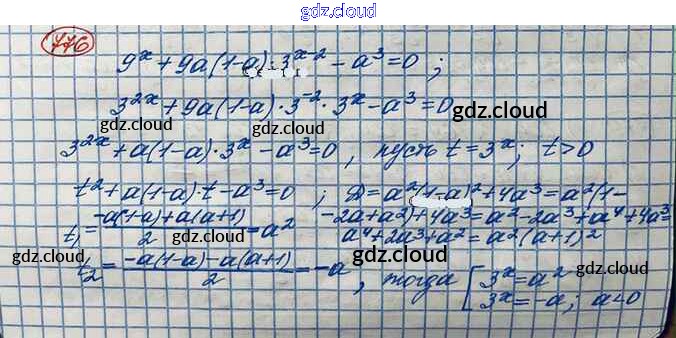 gdz.cloud
776
9^x + 9a(1-a)·3^{x-2} - a^3 = 0 ;
gdz.cloud
3^{2x} + 9a(1-a)·3^{-2}·3^x - a^3 = 0
gdz.cloud
gdz.cloud gdz.cloud
3^{2x} + a(1-a)·3^x - a^3 = 0 , пусть t = 3^x ; t > 0
gdz.cloud gdz.cloud
t^2 + a(1-a)·t - a^3 = 0 ; D = a^2(1-a)^2 + 4a^3 = a^2(1-
gdz.cloud
t_1 = \frac{-a(1-a)+a(a+1)}{2} = a^2 -2a+a^2)+4a^3 = a^2-2a^3+a^4+4a^3 =
gdz.cloud
a^4+2a^3+a^2 = a^2(a+1)^2
gdz.cloud gdz.cloud
t_2 = \frac{-a(1-a)-a(a+1)}{2} = -a , тогда [ 3^x = a^2
3^x = -a ; a<0
gdz.cloud gdz.cloud gdz.cloud